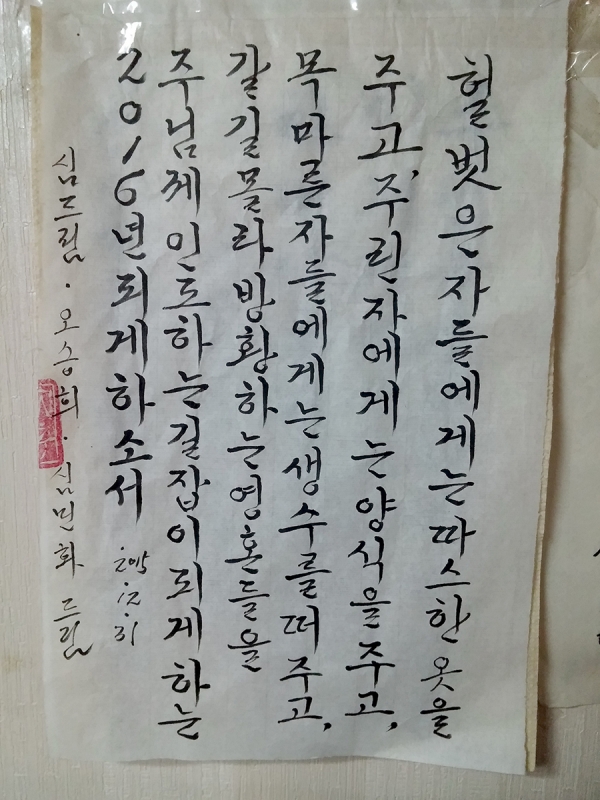 헐벗은자들에게는따스한 옷을
주고, 주린자에게는양식을주고,
목마른자들에게는생수를떠주고,
갈길몰라방황하는영혼들을
주님께인도하는길잡이되게하는
2016년되게하소서 2015.12.31